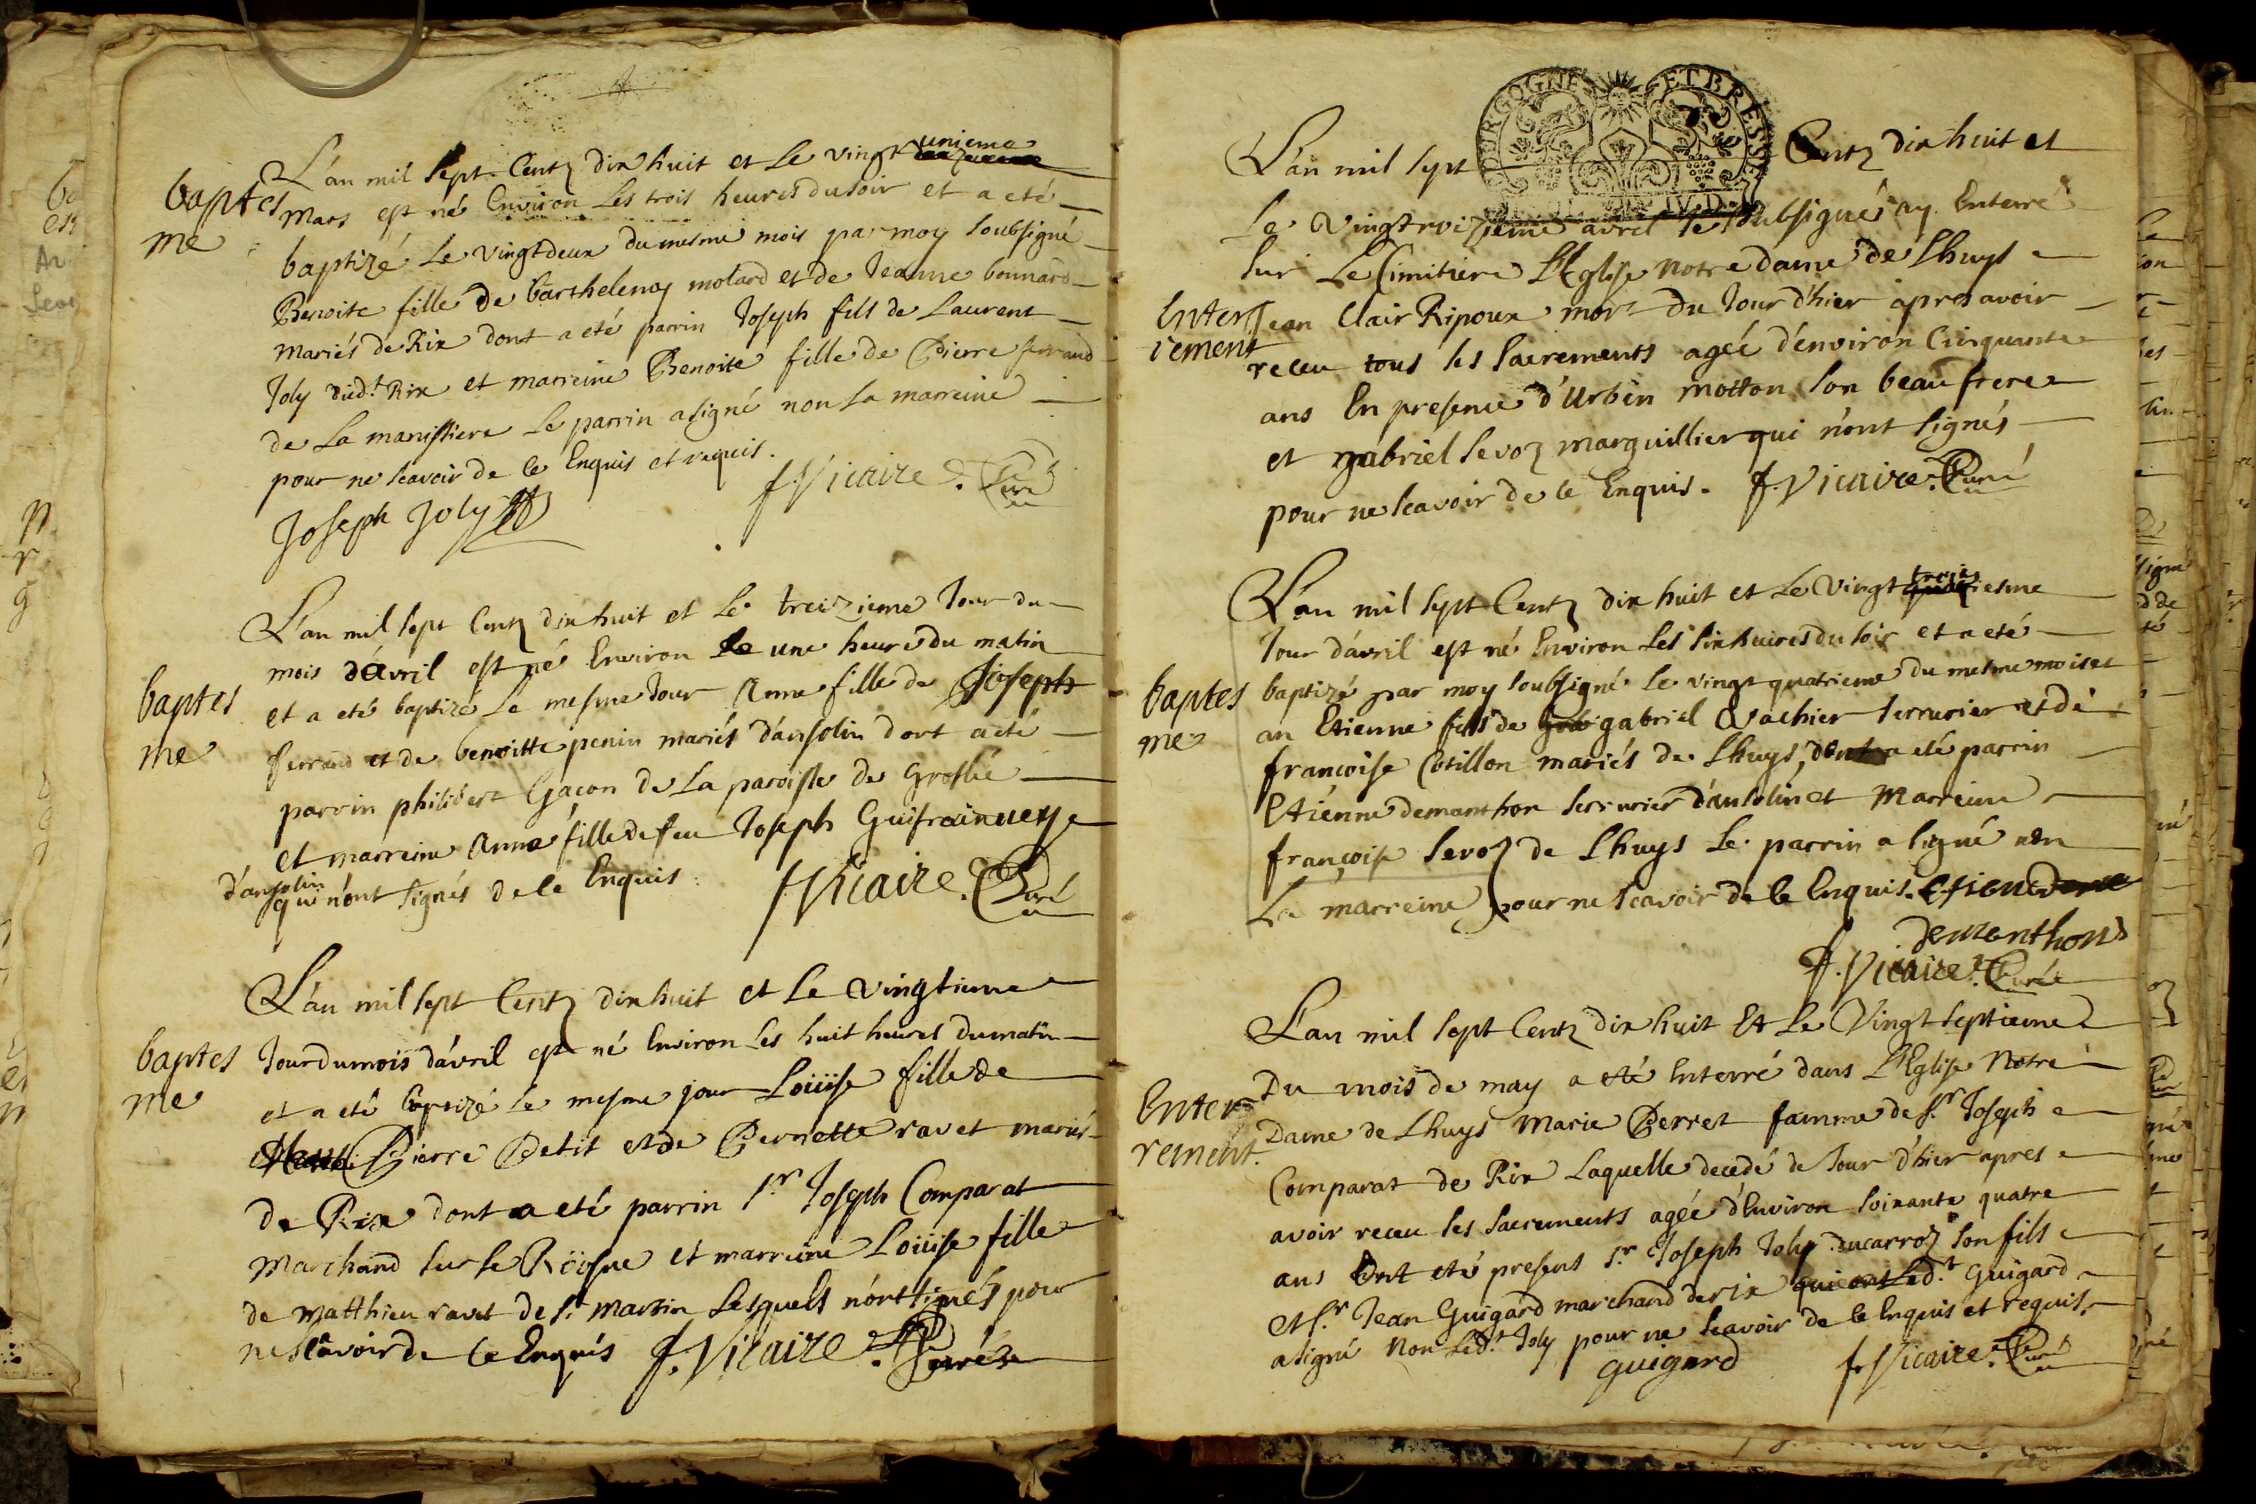 baptes
me
L'an mil sept Centz dix huit et le vingt unieme
Mars est né Environ les trois heures du soir et a eté
baptizé le vingt deux du mesme mois par moy soubsigné
Benoite fille de barthelemy molard et de Jeanne bonnard
mariés de Rix dont a eté parrin Joseph fils de Laurent
Joly dud.t Rix et marreine Benoite fille de Pierre ferrand
de la manissiere le parrin a signé non la marreine
pour ne scavoir de ce Enquis et requis.
Joseph Joly
f. Vicaire. Curé
baptes
me
L'an mil sept Centz dix huit et le treizieme Jour du
mois d'avril est né Environ une heure du matin
et a eté baptizé le mesme Jour Anne fille de Joseph
ferrand et de benoitte penin mariés d'ansolin dont a eté
parrin philibert Gacon de la paroisse de Groslié
et marreine Anne fille de feu Joseph Guifrainuey
d'ansolin
qui n'ont signés de ce Enquis.
f. Vicaire. Curé
baptes
me
L'an mil sept Centz dix huit et le vingtieme
Jour du mois d'avril est né Environ les huit heures du matin
et a eté baptizé le mesme jour Loüise fille de
Pierre Petit et de Pernette ravet mariés
de Rix dont a eté parrin s.r Joseph Comparat
Marchand sur le Rôosne et marreine Loüise fille
de Matthieu ravet de s.t Martin lesquels n'ont signés pour
ne scavoir de ce Enquis f. Vicaire. Curé
BOURGOGNE ET BRESSE
L'an mil sept Centz dix huit et
le vingtroizieme avril le soubsigné ay Enterré
sur le Cimitiere l'Eglise notre dame de Lhuys
Enter
rement
Jean Clair Ripoux mort du Jour d'hier apres avoir
receu tous les sacrements ageé d'environ Cinquante
ans En presence d'Urbin motton son beaufrere
et gabriel sevoz marguillier qui n'ont signés
pour ne scavoir de ce Enquis. f. Vicaire. Curé
L'an mil sept Centz dix huit et le vingt troiziesme
Jour d'avril est né Environ les six heures du soir et a eté
baptes
me
baptizé par moy soubsigné le vingt quatrieme du mesme mois et
an Etienne fils de gabriel Vachier serrurier et de
françoise Cotillon mariés de Lhuys, dont a eté parrin
Etienne demanthon serrurier d'ansolin et Marreine
françoise sevoz de Lhuys le parrin a signé non
La marreine pour ne scavoir de ce Enquis. Etiene
demanthon
f. Vicaire. Curée
L'an mil sept Centz dix huit Et le Vingt septieme
Enter
rement.
Du mois de may a eté Enterré dans l'Eglise Notre
Dame de Lhuys Marie Perret famme de s.r Joseph
Comparat de Rix Laquelle decedé de Jour d'hier apres
avoir receu les sacrements ageé d'Environ soixante quatre
ans Ont eté presents s.r Joseph Joly ducarroz son fils
et s.r Jean Guigard marchand de rix led.t Guigard
a signé Non led.t Joly pour ne scavoir de ce Enquis et requis
guigard
f. Vicaire. Curé